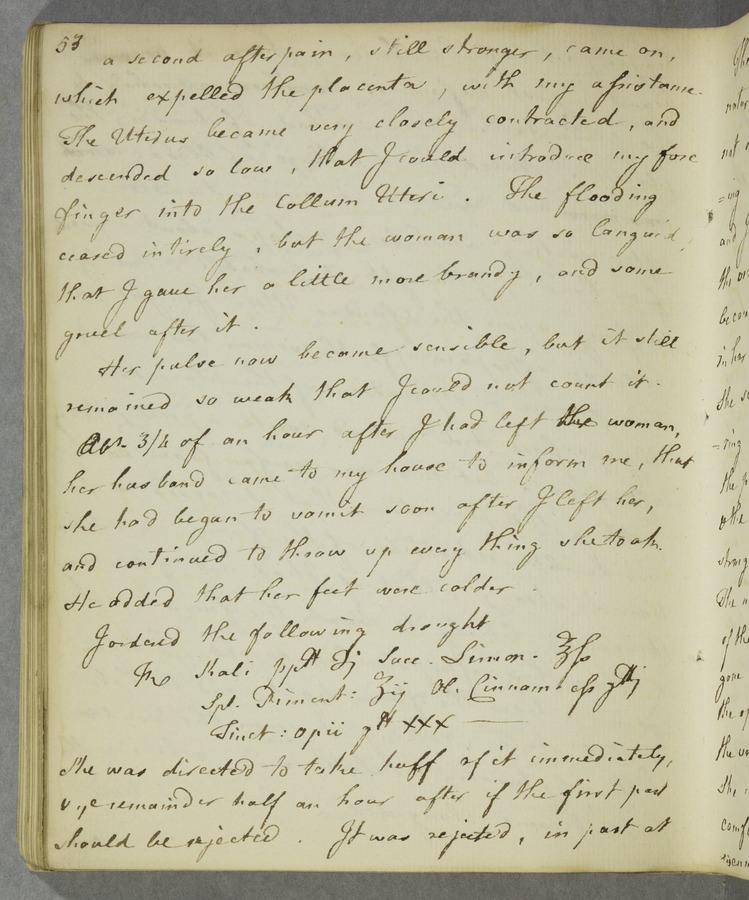 53
a second after pain, still stronger, came on,
which expelled the placenta, with my assistance.
The Uterus became very closely contracted, and
descended so low, that I could introduce my fore
finger into the Collum Uteri. The flooding
ceased intirely, but the woman was so languid,
that I gave her a little more brandy, and some
gruel after it.
Her pulse now became sensible, but it still
remained so weak that I could not count it.
Abt. 3/4 of an hour after I had left the woman,
her husband came to my house to inform me, that
she had begun to vomit soon after I left her,
and continued to throw up every thing she took.
He added that her feet were colder.
I ordered the following draught
Kali ppt ʒj Succ. Limon. ℥ss
Spt. Piment: ʒij Ol. Cinnam. ess gtt j
Tinct: opii gtt XXX
She was directed to take half of it immediately,
& ye remainder half an hour after if the first part
should be rejected. It was rejected, in part at